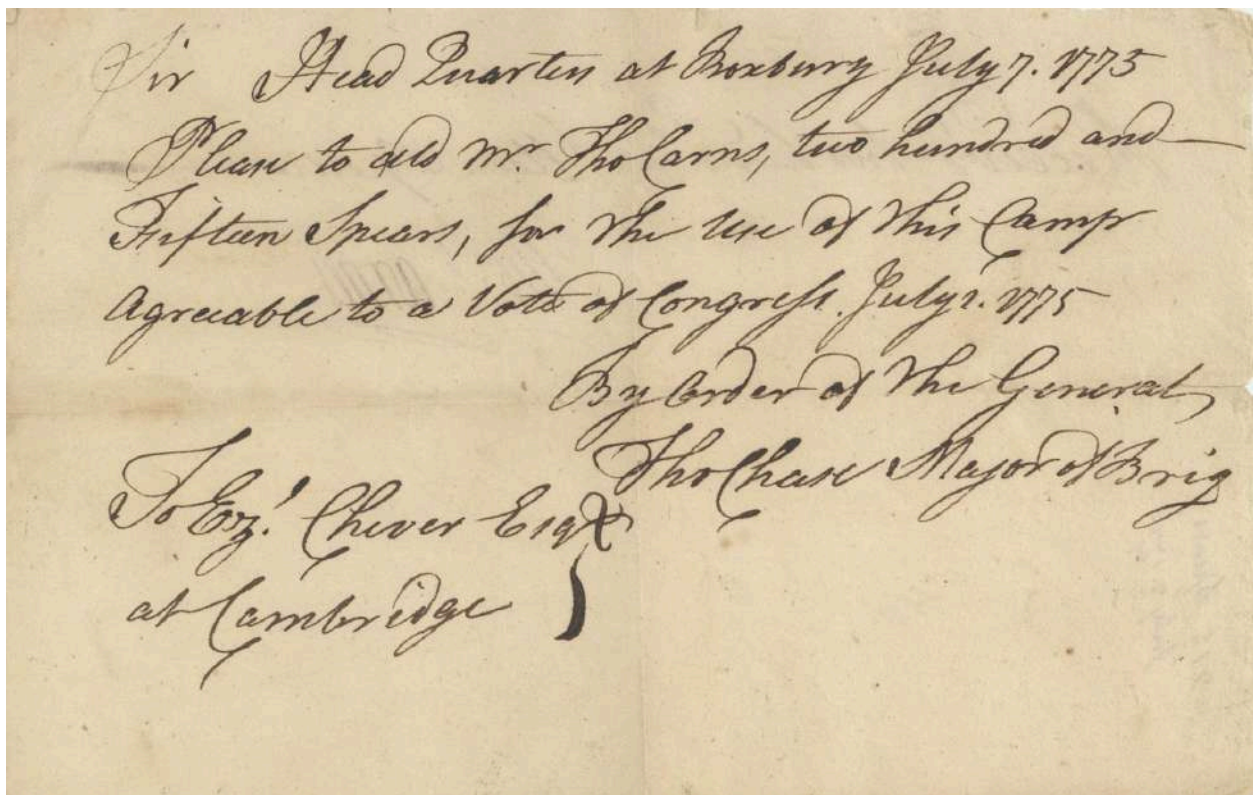 Sir Head Quarters at Roxbury July 7. 1775
Please to deld Mr. Tho Carns, two hundred and
Fifteen Spears, for the Use of this Camp
Agreeable to a Vote of Congress. July 1. 1775
By Order of the General,
Tho Chase Major of Brig
To Ezl. Chever Esqr
at Cambridge